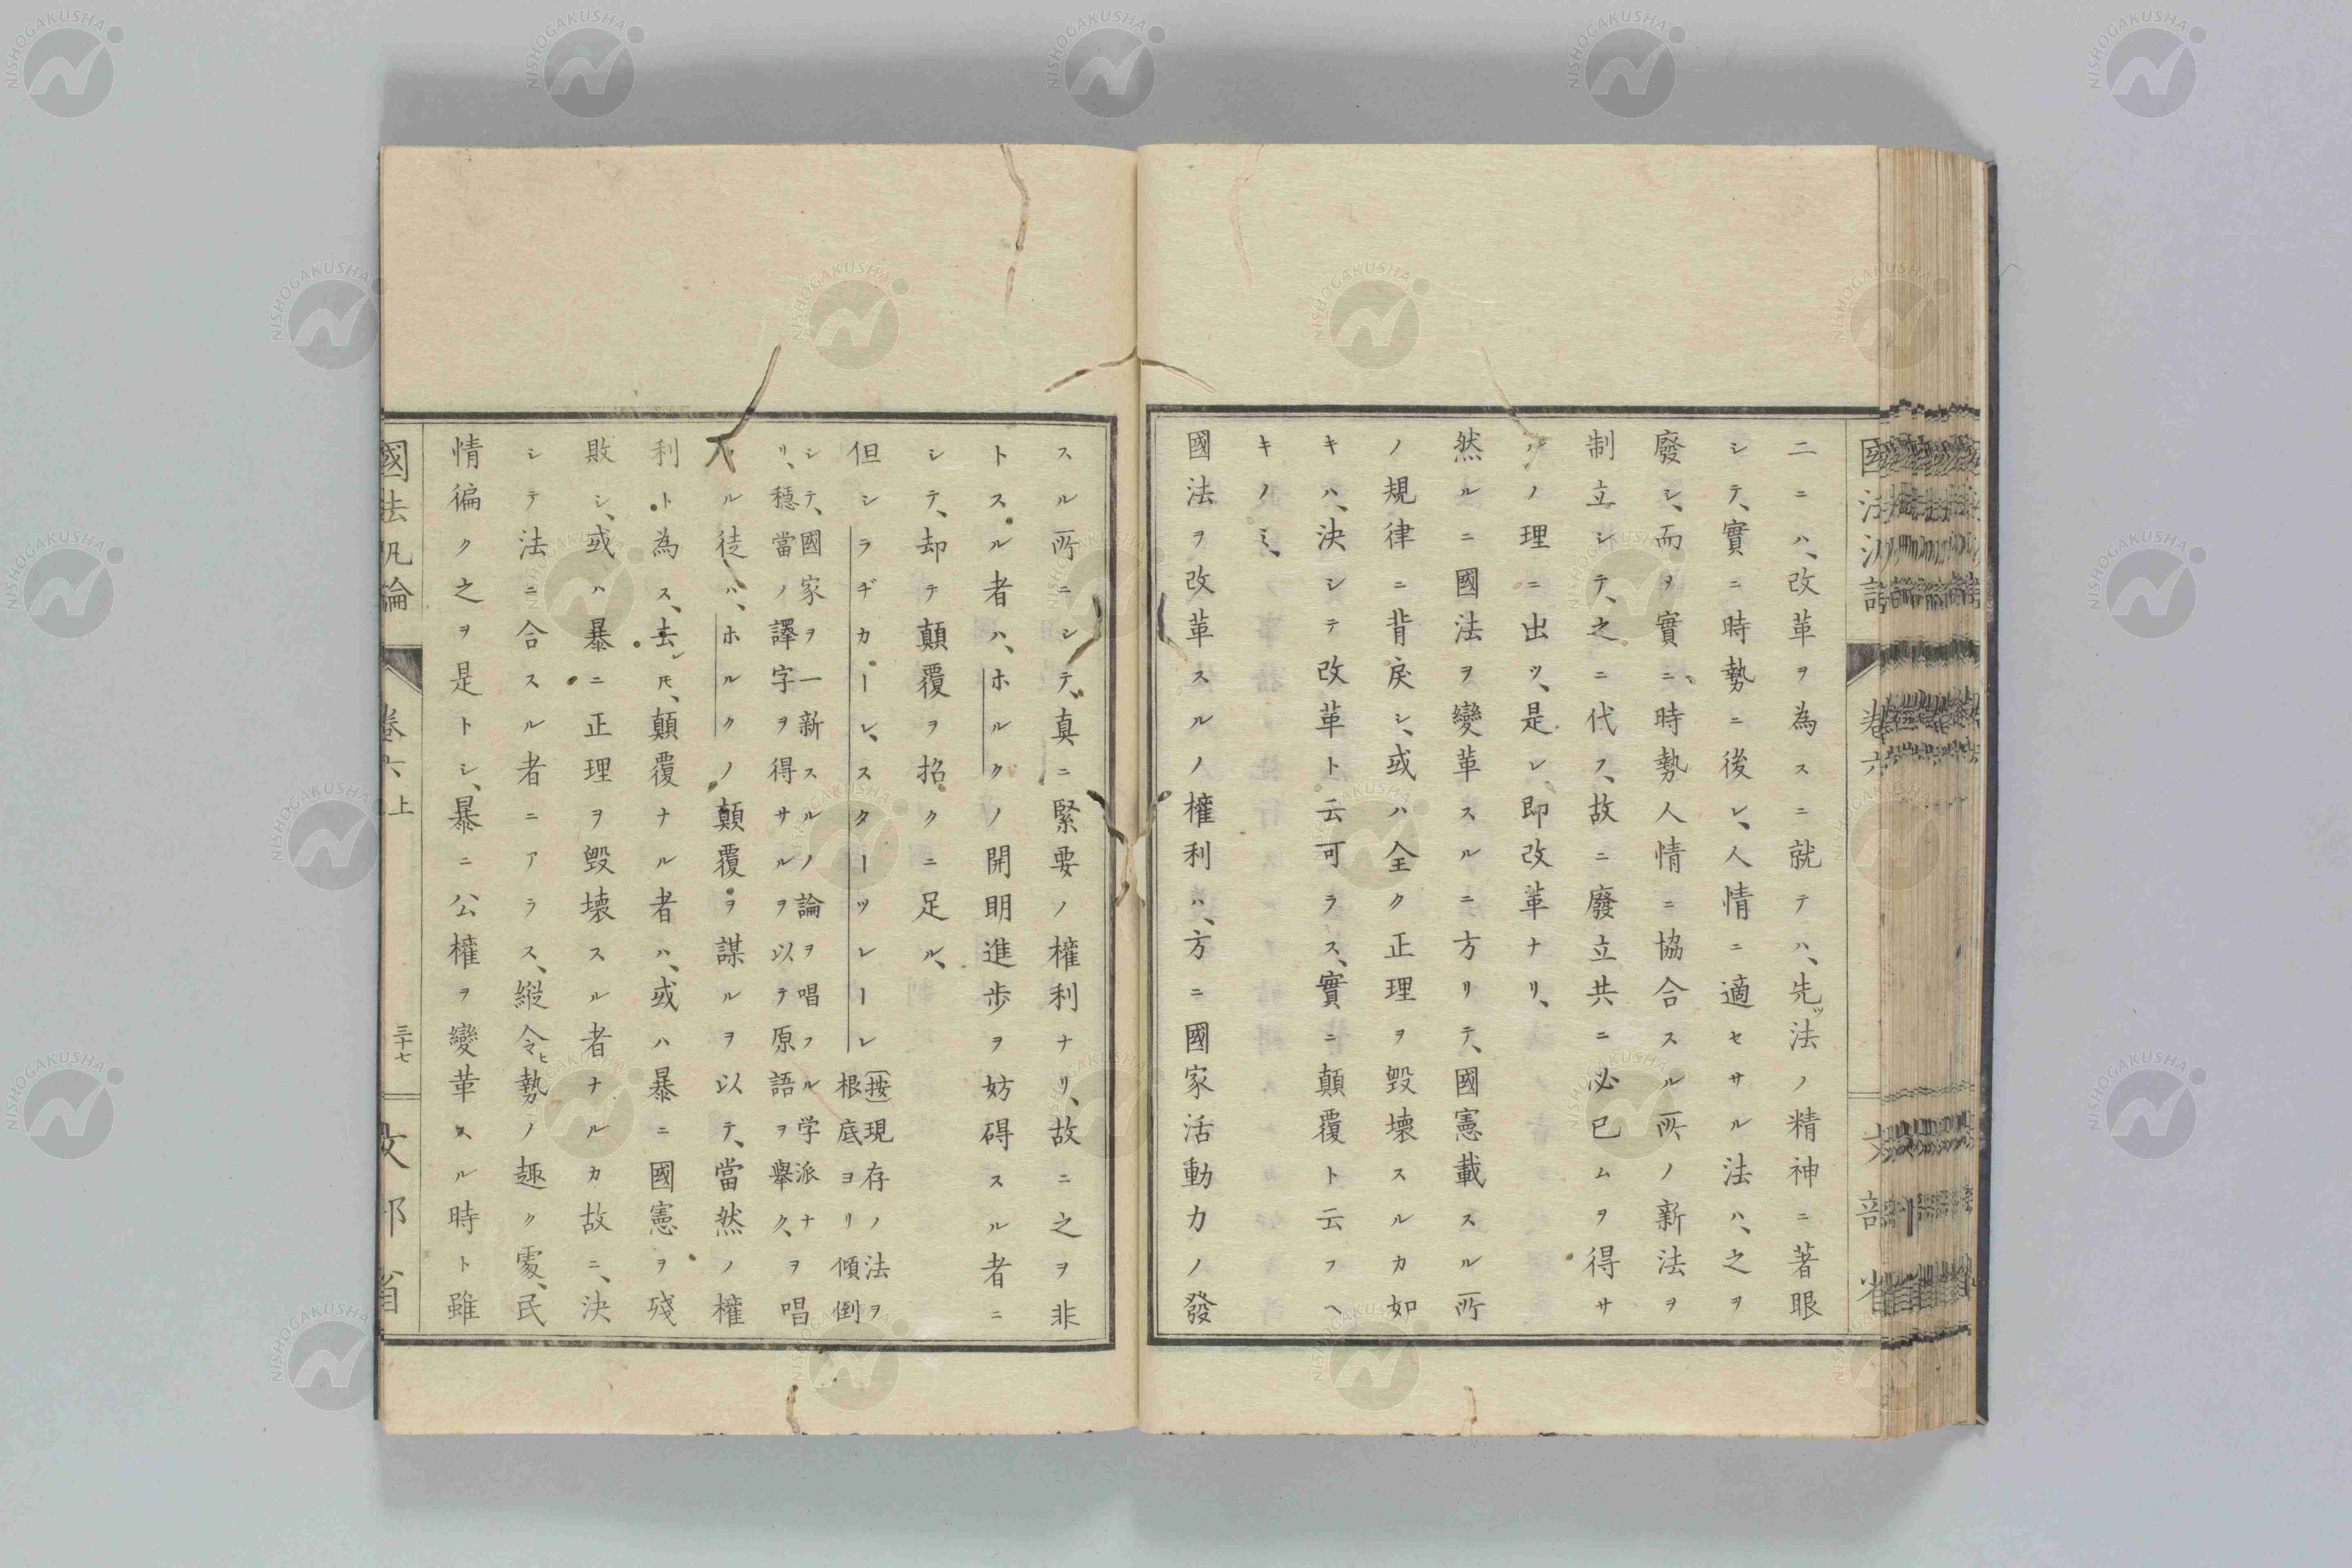 二ニハ、改革ヲ為スニ就テハ、先ツ法ノ精神ニ著眼
シテ、實ニ時勢ニ後レ、人情ニ適セサル法ハ、之ヲ
廢シ、而ヲ實ニ、時勢人情ニ協合スル所ノ新法ヲ
制立シテ、之ニ代フ、故ニ廢立共ニ必已ムヲ得サ
ルノ理ニ出ツ、是レ即改革ナリ、
然ルニ國法ヲ變革スルニ方リテ、國憲載スル所
ノ規律ニ背戻シ、或ハ全ク正理ヲ毀壞スルカ如
キハ、決シテ改革ト云可ラス、實ニ顛覆ト云フヘ
キノミ、
國法ヲ改革スルノ權利ハ、方ニ國家活動力ノ發
スル所ニシテ、真ニ緊要ノ權利ナリ、故ニ之ヲ非
トスル者ハ、ホルクノ開明進歩ヲ妨碍スル者ニ
シテ、却テ顛覆ヲ招クニ足ル、
但シラヂカーレ、スターツレーレ
(按)現存ノ法ヲ
根底ヨリ傾倒
シテ、國家ヲ一新スルノ論ヲ唱フル学派ナ
リ、穏當ノ譯字ヲ得サルヲ以テ原語ヲ舉ク、
ヲ唱
ル徒ハ、ホルクノ顛覆ヲ謀ルヲ以テ、當然ノ權
利ト為ス、去レ𪜈、顛覆ナル者ハ、或ハ暴ニ國憲ヲ殘
敗シ、或ハ暴ニ正理ヲ毀壞スル者ナルカ故ニ、決
シテ法ニ合スル者ニアラス、縱令ヒ勢ノ趣ク處、民
情徧ク之ヲ是トシ、暴ニ公權ヲ變革スル時ト雖
國法汎論
卷六上
三十七
文部省